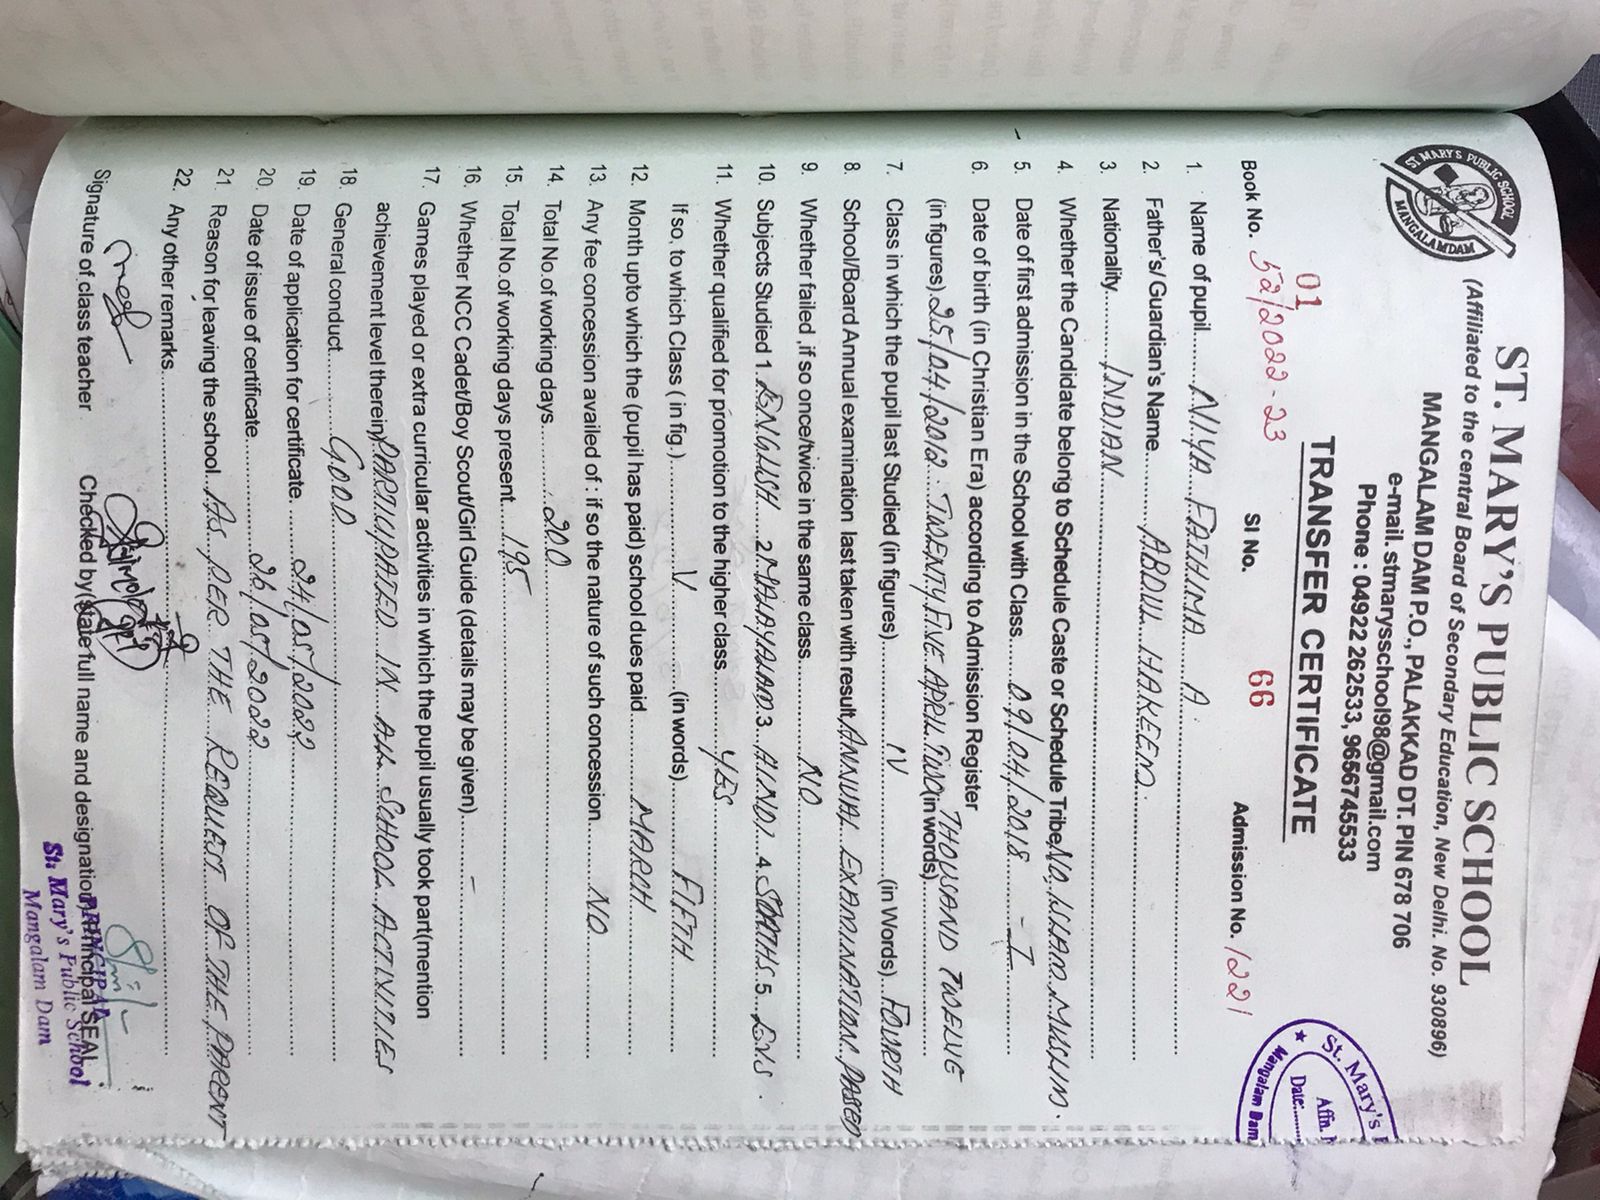 ST. MARY'S PUBLIC SCHOOL
(Affiliated to the central Board of Secondary Education, New Delhi. No. 930896)
MANGALAM DAM P.O., PALAKKAD DT. PIN 678 706
e-mail. stmarysschool98@gmail.com
Phone : 04922 262533, 9656745533
ST MARY'S PUBLIC SCHOOL
MANGALAMDAM
TRANSFER CERTIFICATE
01
Book No. 52/2022-23 SI No. 66 Admission No. 1221
St. Mary's
Affn.
Date:
Mangalam Dam
1. Name of pupil NIYA FATHIMA A.
2. Father's/Guardian's Name ABDUL HAKEEM.
3. Nationality INDIAN
4. Whether the Candidate belong to Schedule Caste or Schedule Tribe NO, ISLAM, MUSLIM.
5. Date of first admission in the School with Class 09/04/2018 - I
6. Date of birth (in Christian Era) according to Admission Register
(in figures) 25/04/2012. (in words) TWENTY FIVE APRIL TWO THOUSAND TWELVE
7. Class in which the pupil last Studied (in figures) IV (in Words) FOURTH
8. School/Board Annual examination last taken with result ANNUAL EXAMINATION, PASSED
9. Whether failed ,if so once/twice in the same class NO
10. Subjects Studied 1. ENGLISH 2 MALAYALAM 3 HINDI 4. MATHS. 5. EVS.
11. Whether qualified for promotion to the higher class YES
If so, to which Class ( in fig.) V (in words) FIFTH
12. Month upto which the (pupil has paid) school dues paid MARCH
13. Any fee concession availed of : if so the nature of such concession NO
14. Total No. of working days 200
15. Total No. of working days present 195
16. Whether NCC Cadet/Boy Scout/Girl Guide (details may be given) -
17. Games played or extra curricular activities in which the pupil usually took part(mention
achievement level therein) PARTICIPATED IN ALL SCHOOL ACTIVITIES
18. General conduct GOOD
19. Date of application for certificate. 24/05/2022
20. Date of issue of certificate. 26/05/2022
21. Reason for leaving the school. AS PER THE REQUEST OF THE PARENT
22. Any other remarks
Signature of class teacher Checked by(state full name and designation) Principal SEAL
PRINCIPAL
St. Mary's Public School
Mangalam Dam